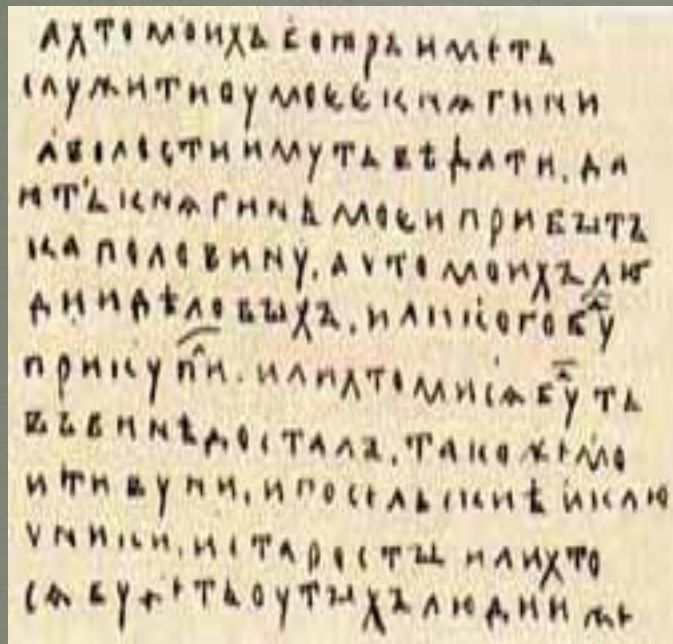 А ХТО МОИХЪ БОꙖРЪ ИМЕТЬ
СЛУЖИТИ ОУ МОЕЕ КНѦГИНИ
А ВОЛОСТИ ИМУТЬ ВѢДАТИ, ДА
ИТЬ КНѦГИНѢ МОЕИ ПРИБЫТЪ
КА ПОЛОВИНУ. А ЧТО МОИХЪ ЛЮ
ДИИ ДѢЛОВЫХЪ, ИЛИ КОГО БУ
ПРИКУПИ. ИЛИ ХТО МИ СѦ БУТЬ
ВЪ ВИНѢ ДОСТАЛЪ, ТАКО ЖЕ МО
И ТИВУНИ, И ПОСЕЛЬСКИѢ И КЛЮ
ЧНИКИ, И СТАРОСТЫ ИЛИ ХТО
СѦ БУДЕТЬ ОУ ТЫХЪ ЛЮДИИ ЖЕ